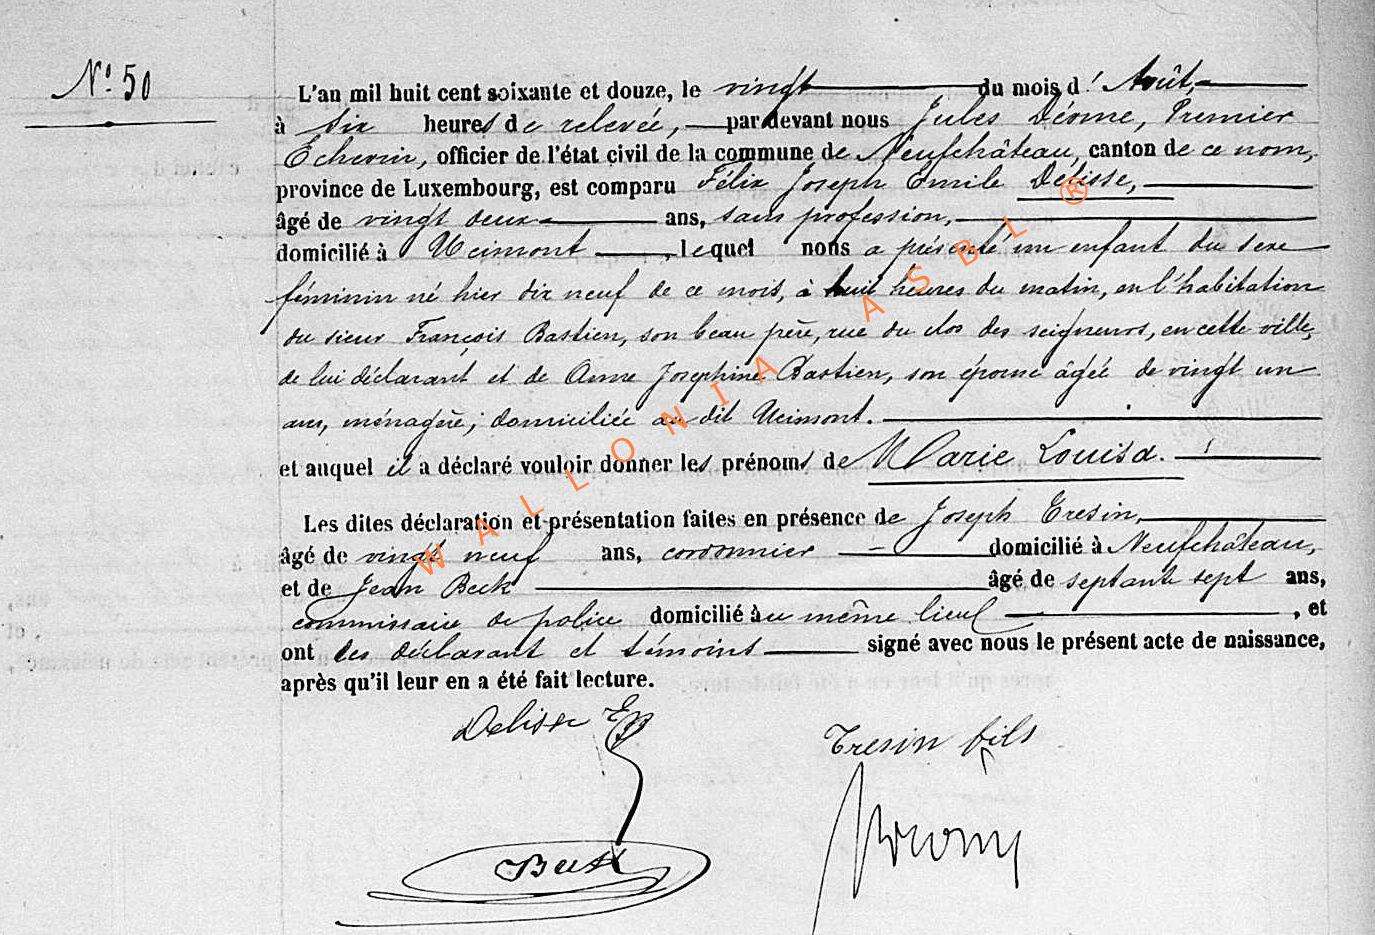 N° 50
L'an mil huit cent soixante et douze, le vingt du mois d'Août,
à six heures de relevée, par devant nous Jules Dérome, Premier
Echevin, officier de l'état civil de la commune de Neufchâteau, canton de ce nom,
province de Luxembourg, est comparu Félix Joseph Emile Delisse,
âgé de vingt deux ans, sans profession,
domicilié à Ucimont, lequel nous a présenté un enfant du sexe
féminin né hier dix neuf de ce mois, à huit heures du matin, en l'habitation
du sieur François Bastien, son beau père, rue du clos des seigneurs, en cette ville,
de lui déclarant et de Anne Josephine Bastien, son épouse âgée de vingt un
ans, ménagère, domiciliée au dit Ucimont.
et auquel il a déclaré vouloir donner les prénoms de Marie Louisa.
Les dites déclaration et présentation faites en présence de Joseph Tresin,
âgé de vingt neuf ans, cordonnier domicilié à Neufchâteau,
et de Jean Beck âgé de septante sept ans,
commissaire de police domicilié au même lieu, et
ont les déclarant et témoins signé avec nous le présent acte de naissance,
après qu'il leur en a été fait lecture.
Delisse
Tresin fils
Beck
WALLONIA ASBL ®